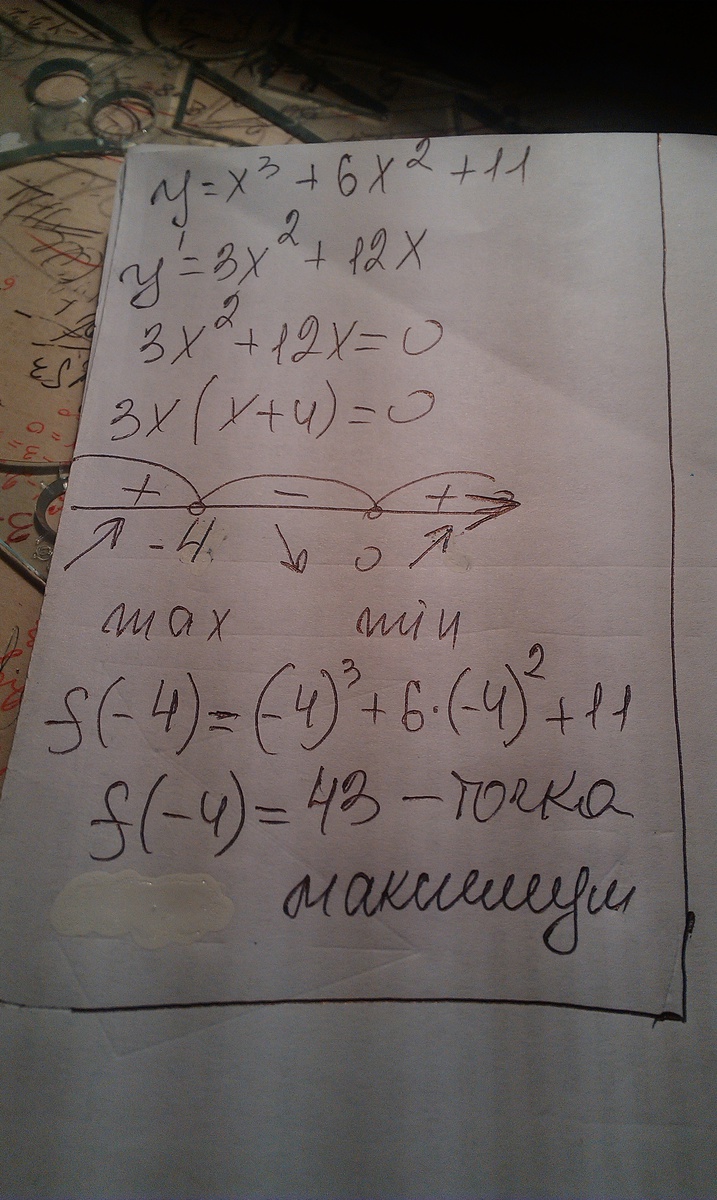 y=x³+6x²+11
y'=3x²+12x
3x²+12x=0
3x(x+4)=0
+ − +
-4 0
max min
f(-4)=(-4)³+6·(-4)²+11
f(-4)=43 – точка
максимум